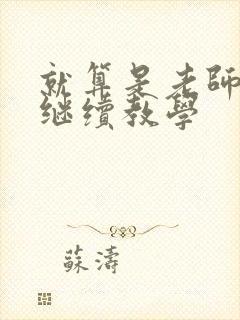 就算是老師
继续教學
蘇濤